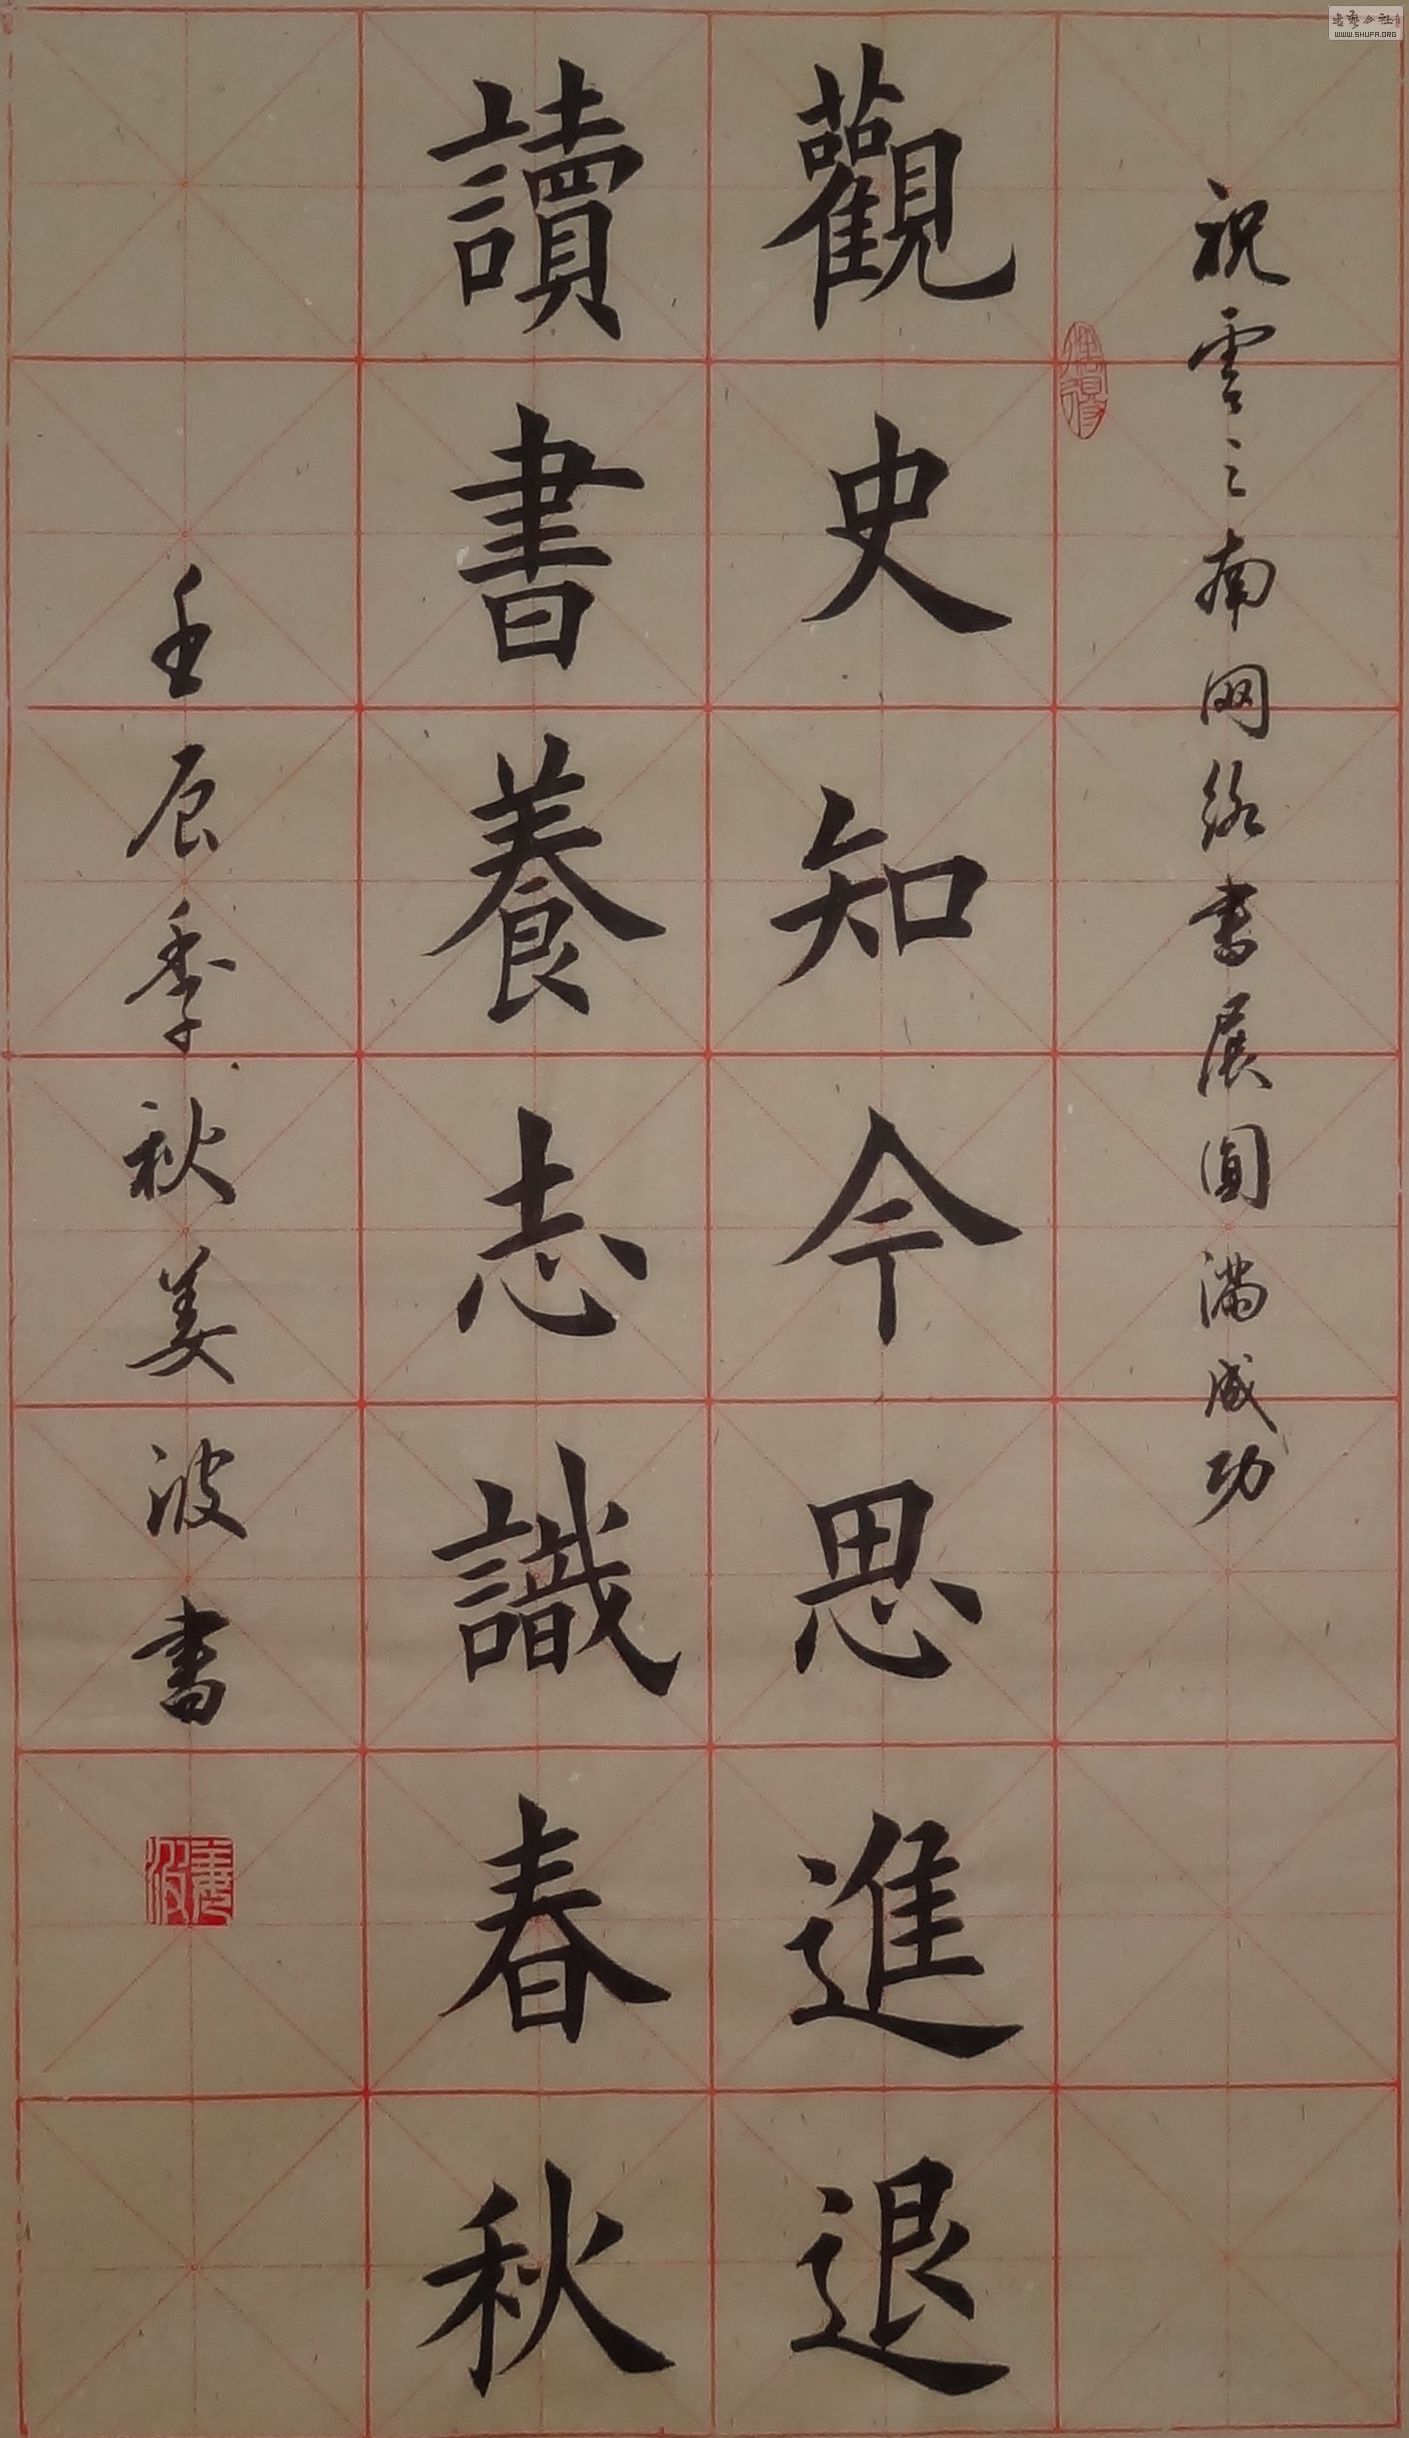 祝雲之南网络書展圓满成功
觀史知今思進退
讀書養志識春秋
壬辰季秋姜波书
書藝公社
WWW.SHUFA.ORG